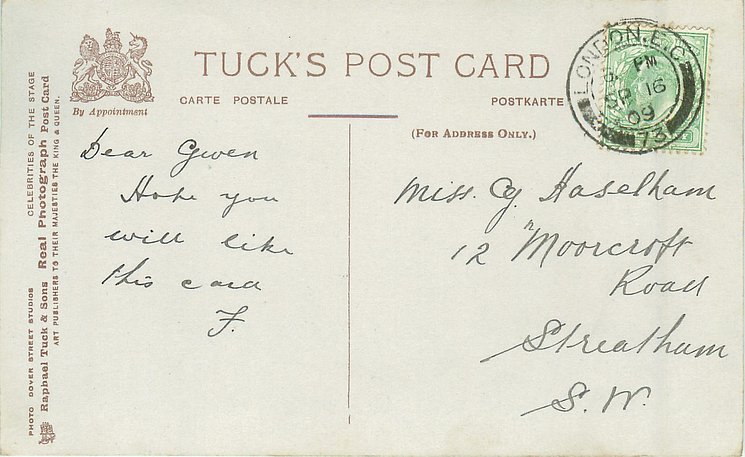 TUCK'S POST CARD
By Appointment
CARTE POSTALE
POSTKARTE
(FOR ADDRESS ONLY.)
CELEBRITIES OF THE STAGE
PHOTO DOVER STREET STUDIOS
Raphael Tuck & Sons Real Photograph Post Card
ART PUBLISHERS TO THEIR MAJESTIES THE KING & QUEEN.
LONDON. E.C.
PM
SP 16
09
73
Dear Gwen
Hope you
will like
this card
F.
Miss. G. Haselham
12 Moorcroft
Road
Streatham
S. W.